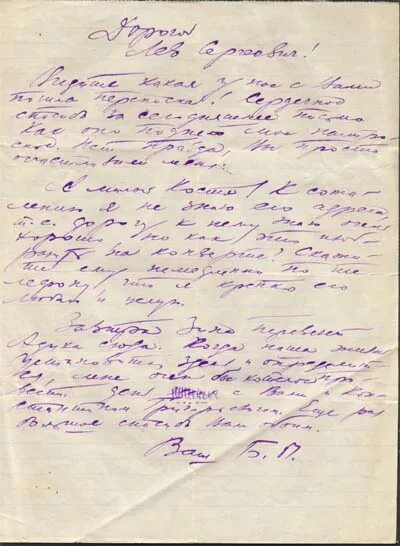 Дорогой
Лев Сергеевич!
Видите какая у нас с Вами
пошла переписка! Сердечное
спасибо за сегодняшнее письмо
как оно подняло мое настро-
Нет правда, Вы просто
осчастливили меня...
А милый Костя! К сожа-
лению я не знаю его адреса
т.е. дорогу к нему знаю очень
хорошо но как это
на конверте? Скажи-
те ему немедленно по те-
лефону, что я крепко его
люблю и целую.
Завтра Зина перевезет
Адика сюда. Когда наша жизнь
установится здесь и определит-
ся, мне очень бы хотелось про-
вести день с Вами и Кон-
стантином Еще раз
спасибо Вам обоим.
Ваш Б. П.